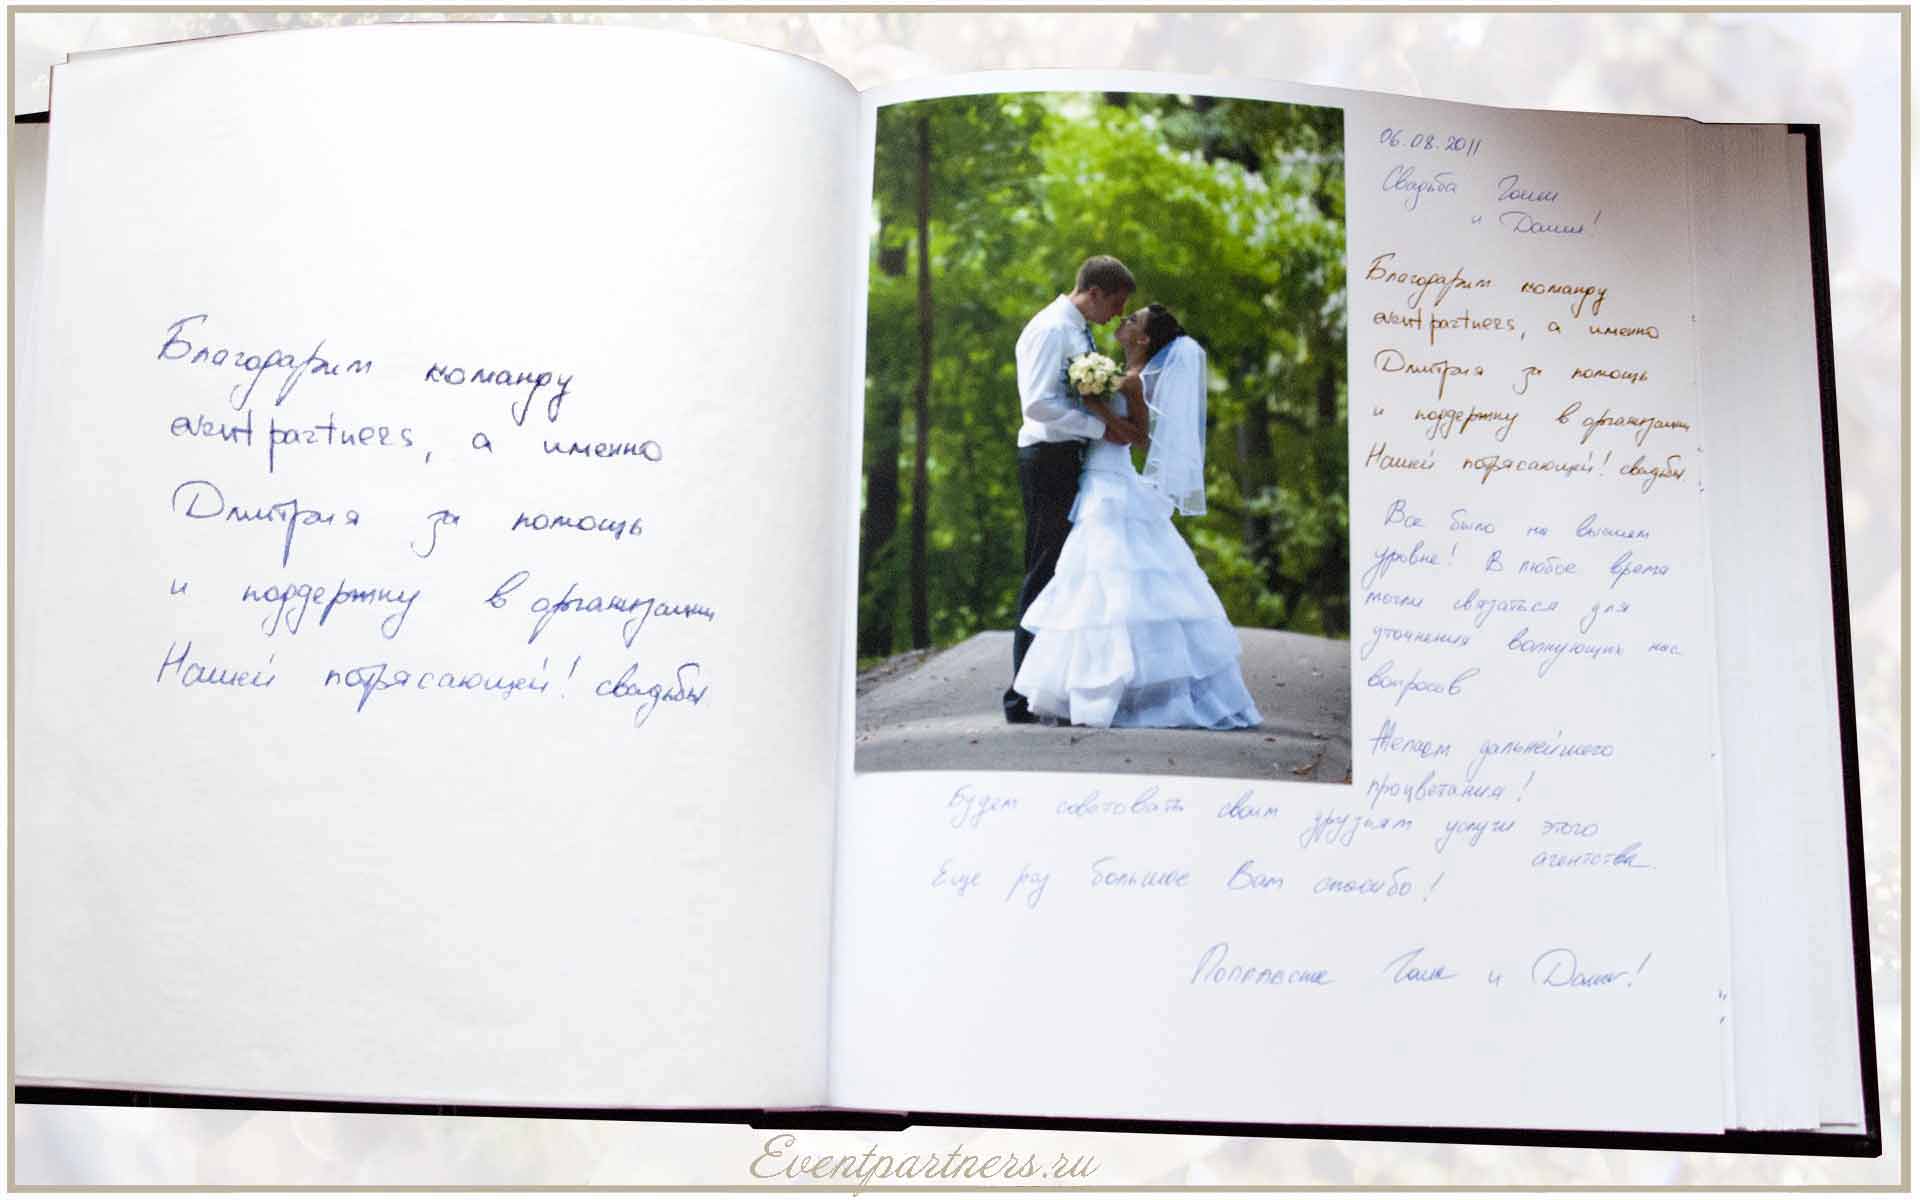 Благодарим команду
eventpartners, а именно
Дмитрия за помощь
и поддержку в организации
Нашей потрясающей! свадьбы
06.08.2011
Свадьба
и Даши!
Благодарим команду
eventpartners, а именно
Дмитрия за помощь
и поддержку в организации
Нашей потрясающей! свадьбы
Все было на высшем
уровне! В любое время
могли связаться для
уточнения волнующих нас
вопросов
Желаем дальнейшего
процветания!
Будем советовать своим друзьям услуги этого
агентства.
Еще раз большое Вам спасибо!
и Даша!
Eventpartners.ru